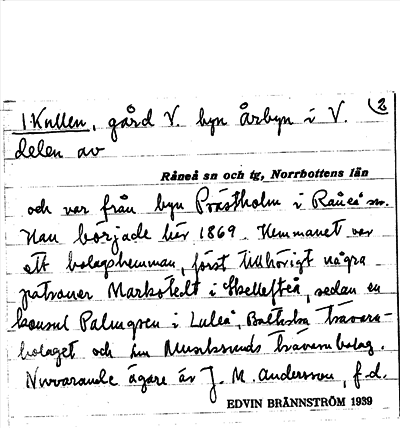 2
1 Knllen, gård V. byn Årbyn i V.
delen av
Råneå sn och tg, Norrbottens län
och var från byn Prästholm i Råneå sn.
Han började här 1869. Hemmanet var
ett bolagshemman, först tillhörigt några
patroner Markstedt i Skellefteå, sedan en
konsul Palmgren i Luleå, Baltiska trävaru-
bolaget och Munksunds trävarubolag.
Nuvarande ägare är J. M. Andersson, f.d.
EDVIN BRÄNNSTRÖM 1939